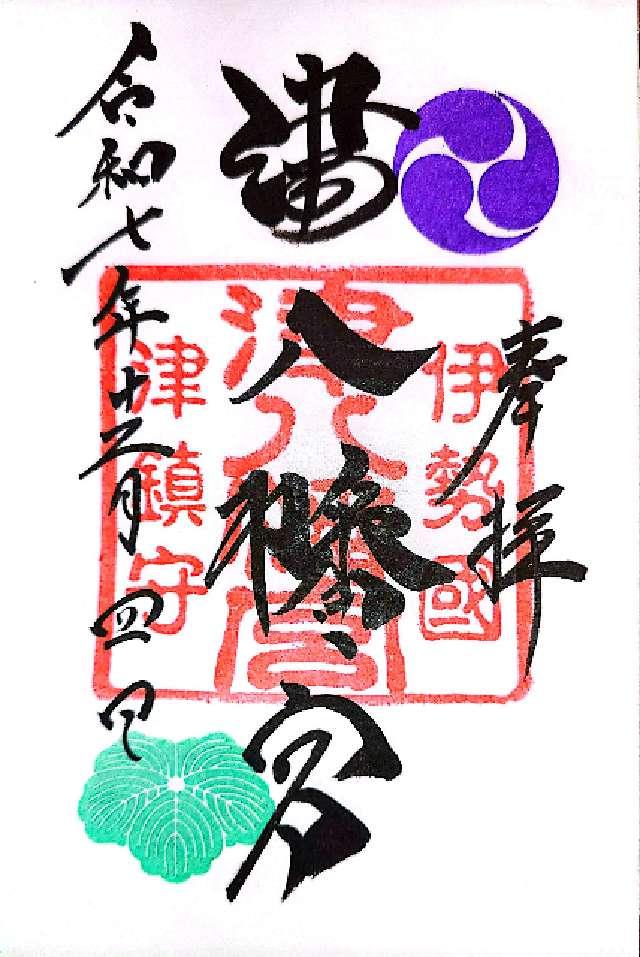 奉拝
伊勢國
津八幡宮
津八幡宮
津鎮守
令和七年十二月四日